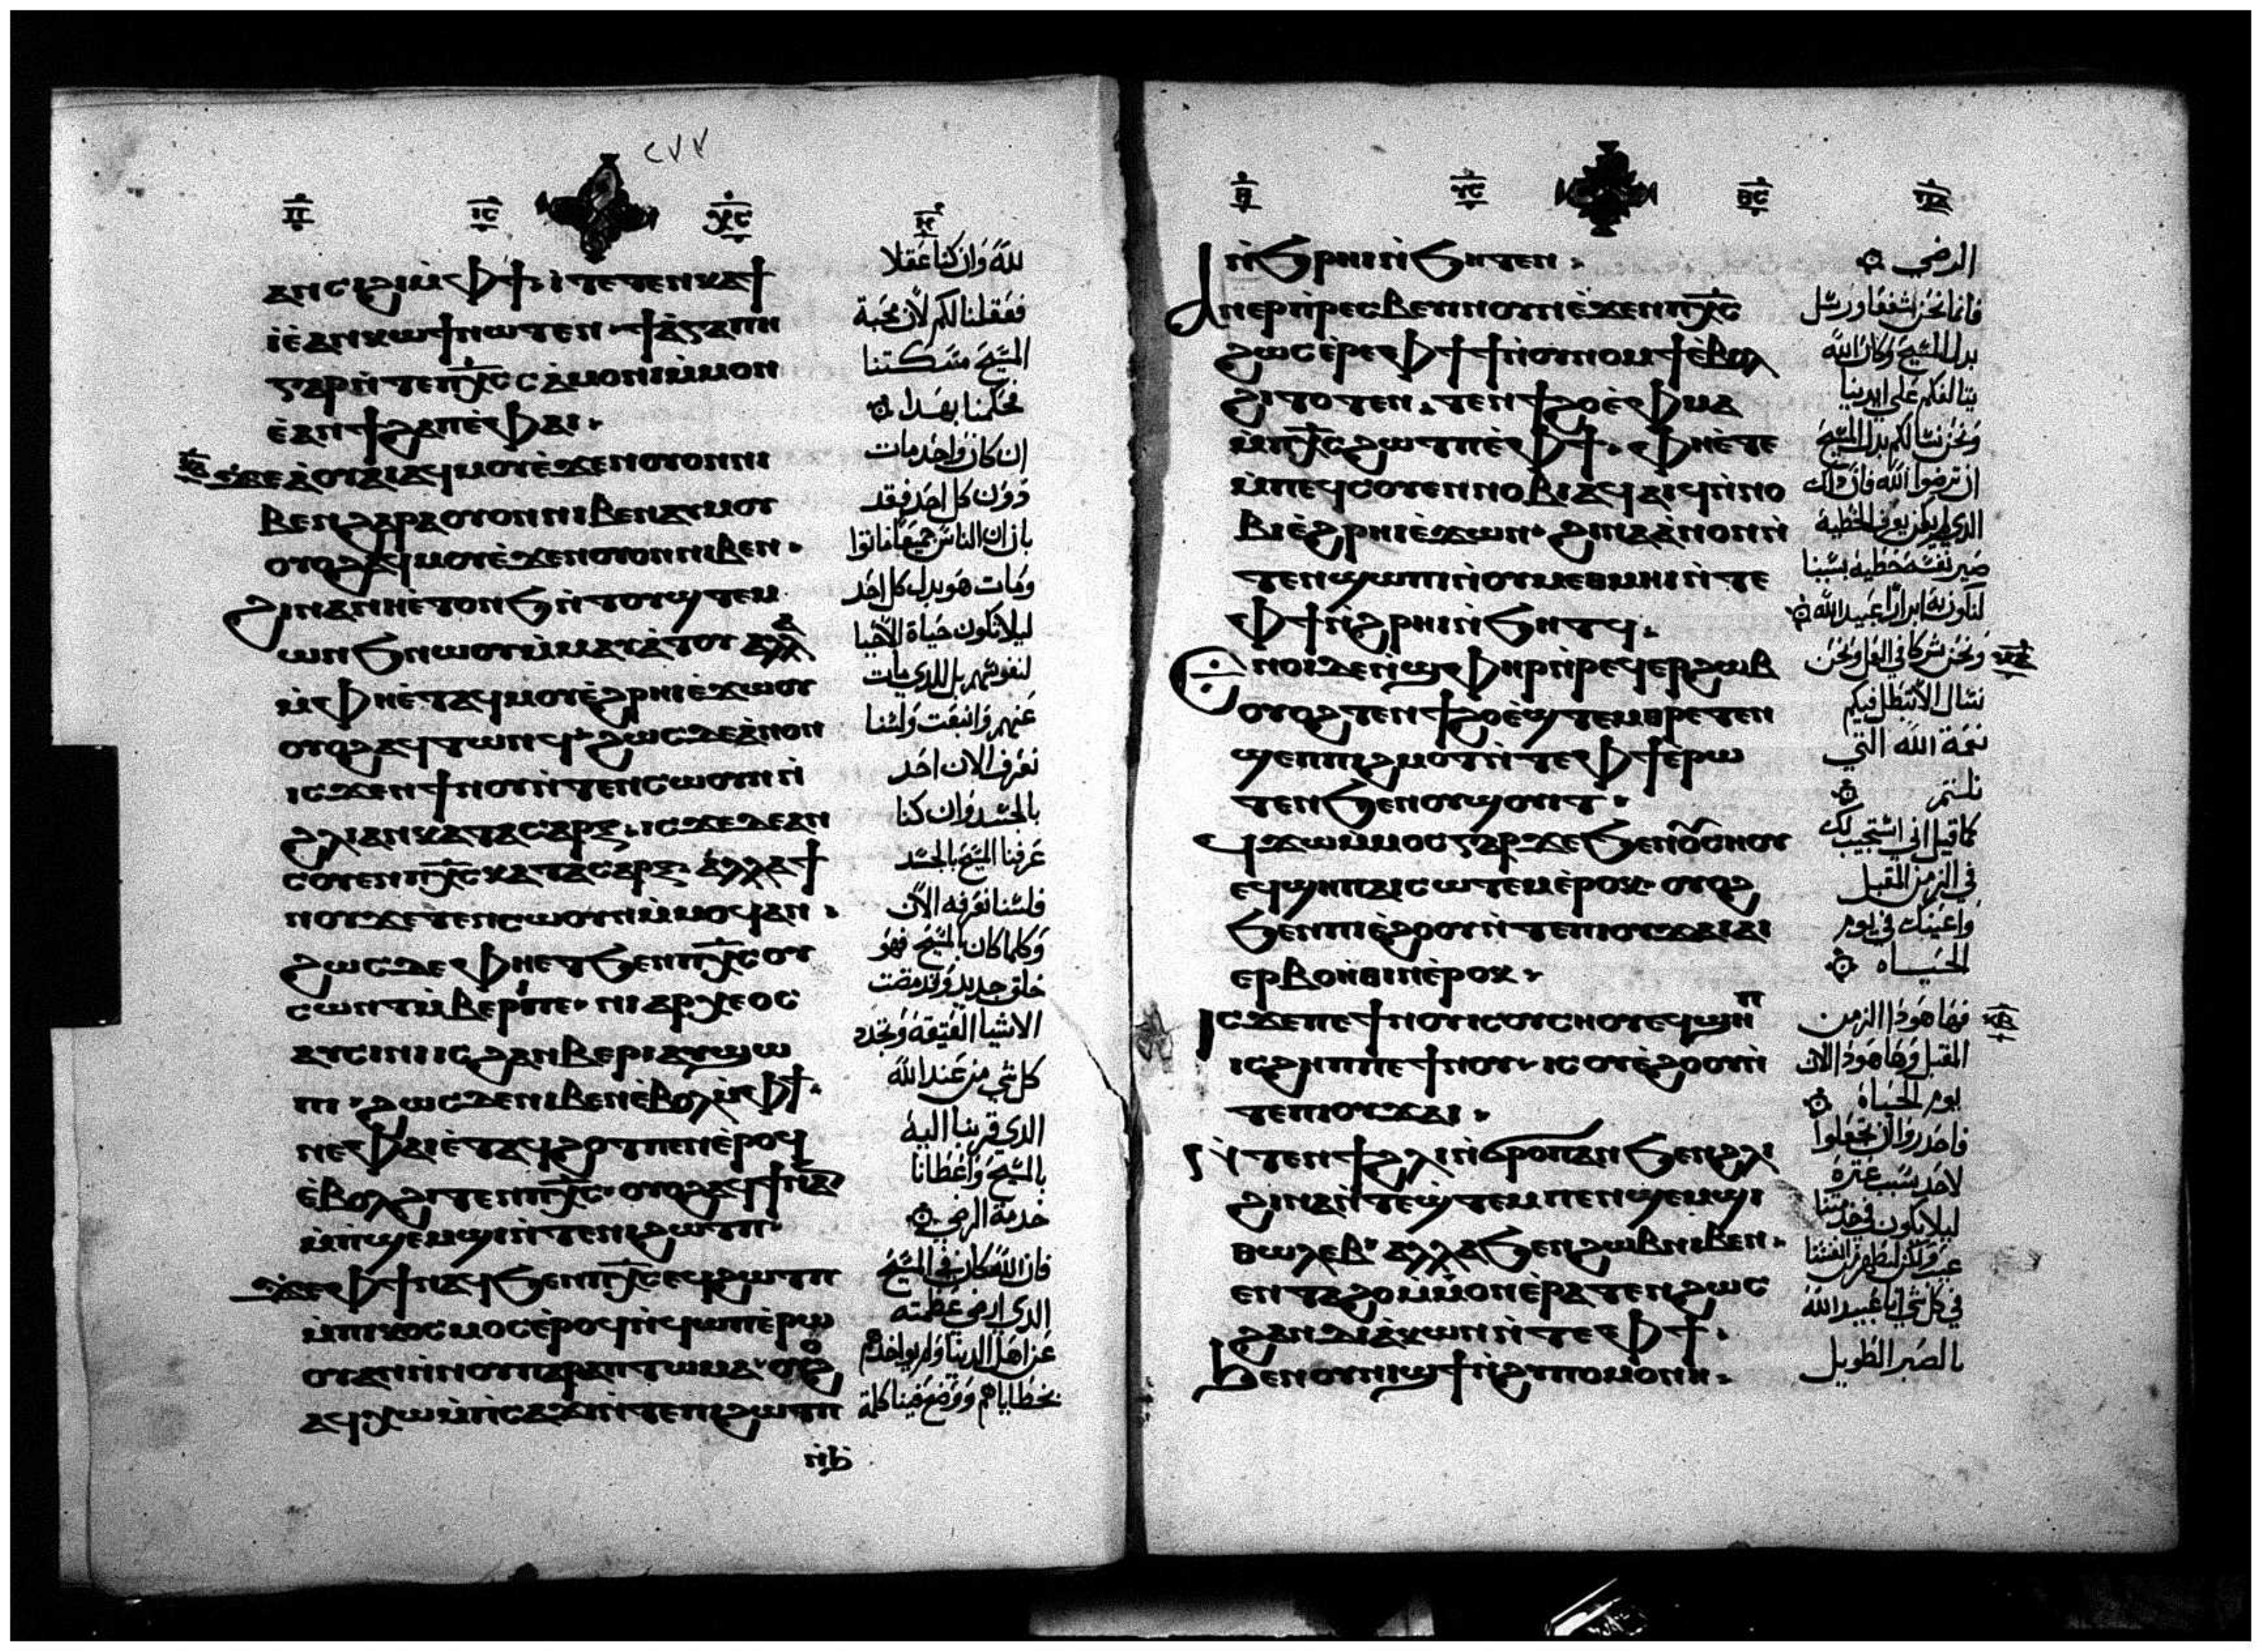 ٢٧٧
ⲓⲥ ⲭⲥ
ⲁⲛⲥⲓϩⲓ ⲙ̀ⲫϯ ⲓⲧⲉ ⲧⲉⲛⲕⲁϯ
ⲓⲉ̀ ⲁⲛⲭⲱ ϯⲛⲱⲧⲉⲛ ϯⲁ̀ⲅⲁⲡⲏ
ⲅⲁⲣ ⲛ̀ⲧⲉ ⲡⲭ̅ⲥ̅ ⲥⲁ̀ⲙⲟⲛⲓ ⲙ̀ⲙⲟⲛ
ⲉ̀ⲁⲛϯϩⲁⲡ ⲉ̀ⲫⲁⲓ
ϫⲉ ⲁ̀ⲟⲩⲁⲓ ⲁϥⲙⲟⲩ ⲉ̀ϫⲉⲛ ⲟⲩⲟⲛ ⲛⲓ
ⲃⲉⲛ ϩⲁⲣⲁ ⲟⲩⲟⲛ ⲛⲓⲃⲉⲛ ⲁⲩⲙⲟⲩ
ⲟⲩⲟϩ ⲁϥⲙⲟⲩ ⲉ̀ϫⲉⲛ ⲟⲩⲟⲛ ⲛⲓⲃⲉⲛ
ϩⲓⲛⲁ ⲛⲏⲉ̀ⲧⲟⲛϧ ⲛ̀ⲧⲟⲩϣⲧⲉⲙ
ⲱⲛϧ ⲛⲱⲟⲩ ⲙ̀ⲙⲁⲩⲁ̀ⲧⲟⲩ ⲁⲗⲗⲁ
ⲙ̀ⲫⲏⲉ̀ⲧⲁϥⲙⲟⲩ ⲉ̀ϩⲣⲏⲓ ⲉ̀ϫⲱⲟⲩ
ⲟⲩⲟϩ ⲁϥⲧⲱⲛϥ ϩⲱⲥⲇⲉ ⲁ̀ⲛⲟⲛ
ⲓⲥϫⲉⲛ ϯⲛⲟⲩ ⲛ̀ⲧⲉⲛⲥⲱⲟⲩⲛ ⲛ̀
ϩⲗⲓ ⲁⲛ ⲕⲁⲧⲁ ⲥⲁⲣⲝ ⲓⲥϫⲉ ⲇⲉ ⲁⲛ
ⲥⲟⲩⲉⲛ ⲡⲭ̅ⲥ̅ ⲕⲁⲧⲁ ⲥⲁⲣⲝ ⲁⲗⲗⲁ ϯ
ⲛⲟⲩ ϫⲉ ⲧⲉⲛⲥⲱⲟⲩⲛ ⲙ̀ⲙⲟϥ ⲁⲛ
ϩⲱⲥⲇⲉ ⲫⲏⲉⲧϧⲉⲛ ⲡⲭ̅ⲥ̅ ⲟⲩ
ⲥⲱⲛⲧ ⲙ̀ⲃⲉⲣⲓ ⲡⲉ ⲛⲓⲁⲣⲭⲉⲟⲥ
ⲁⲩⲥⲓⲛⲓ ⲓⲥ ϩⲁⲛⲃⲉⲣⲓ ⲁⲩϣⲱ
ⲡⲓ ϩⲱⲥⲇⲉ ⲛⲓⲃⲉⲛ ⲉ̀ⲃⲟⲗ ⲙ̀ⲫϯ
ⲛⲉ ⲫⲁⲓ ⲉ̀ⲧⲁϥϩⲟⲧⲡⲉⲛ ⲉ̀ⲣⲟϥ
ⲉ̀ⲃⲟⲗ ϩⲓⲧⲉⲛ ⲡⲭ̅ⲥ̅ ⲟⲩⲟϩ ⲁϥϯ ⲛⲁⲛ
ⲙ̀ⲡϣⲉⲙϣⲓ ⲛ̀ⲧⲉ ⲡⲓϩⲱⲧⲡ
ϫⲉ ⲫϯ ⲛⲁϥϧⲉⲛ ⲡⲭ̅ⲥ̅ ⲉϥϩⲱⲧⲡ
ⲙ̀ⲡⲓⲕⲟⲥⲙⲟⲥ ⲉ̀ⲣⲟϥ ⲛ̀ϥⲱⲡ ⲉ̀ⲣⲱ
ⲟⲩ ⲁⲛ ⲛ̀ⲛⲟⲩⲡⲁⲣⲁⲡⲧⲱⲙⲁ ⲟⲩⲟϩ
ⲁϥⲭⲱ ⲙ̀ⲡⲥⲁϫⲓ ⲛ̀ⲧⲉ ⲡⲓϩⲱⲧⲡ
ⲛ̀ϧ
لله وان كنا عقلا
فعقلنا لكم لان محبة
المسيح متمسكتنا
فحكمنا بهدا
ان كان واحد مات
دون كل احد فقد
بان ان الناس جميعا ماتوا
ومات هو بدل كل احد
ليلا تكون حياة الاحيا
لنفوسهم بل للدي مات
عنهم وانبعت ولسنا
نعرف الان احد
بالجسد وان كنا
عرفنا المسيح بالجسد
فلسنا نعرفه الان
وكلما كان بالمسيح فهو
خلق جديد وقد مضت
الاشيا العتيقة وتجدد
كل شي من عند الله
الدي قربنا اليه
بالمسيح واعطانا
خدمة الرضى
فان الله كان في المسيح
الدي ارضى عظمته
عن اهل الدنيا ولم يواخدهم
بخطاياهم ووضع فينا كلمة
ⲩⲥ ⲑⲥ
ⲛ̀ϧⲣⲏⲓ ⲛ̀ϧⲏⲧⲉⲛ
ⲁⲛⲉⲣⲡⲣⲉⲥⲃⲉⲩⲓⲛ ⲟⲩⲛ ⲉ̀ϫⲉⲛ ⲡⲭ̅ⲥ̅
ϩⲱⲥ ⲉ̀ⲣⲉ ⲫϯ ϯⲛ̀ⲟⲩⲛⲟⲙϯ ⲉ̀ⲃⲟⲗ
ϩⲓⲧⲟⲧⲉⲛ ⲧⲉⲛϯϩⲟ ⲉ̀ⲫⲙⲁ
ⲙ̀ⲡⲭ̅ⲥ̅ ϩⲱⲧⲡ ⲉ̀ⲫϯ ⲫⲏⲉ̀ⲧⲉ
ⲙ̀ⲡⲉϥⲥⲟⲩⲉⲛ ⲛⲟⲃⲓ ⲁϥⲁⲓϥ ⲛ̀ⲛⲟ
ⲃⲓ ⲉ̀ϩⲣⲏⲓ ⲉ̀ϫⲱⲛ ϩⲓⲛⲁ ⲁ̀ⲛⲟⲛ ⲛ̀
ⲧⲉⲛϣⲱⲡⲓ ⲛ̀ⲟⲩⲙⲉⲑⲙⲏⲓ ⲛ̀ⲧⲉ
ⲫϯ ⲛ̀ϩⲣⲏⲓ ⲛ̀ϧⲏⲧϥ
ⲉⲛⲟⲓ ⲇⲉ ⲛ̀ϣⲫⲏⲣ ⲛ̀ⲣⲉϥⲉⲣϩⲱⲃ
ⲟⲩⲟϩ ⲧⲉⲛϯϩⲟ ⲉ̀ϣⲧⲉⲙⲑⲣⲉⲧⲉⲛ
ϣⲉⲡ ⲡⲓϩⲙⲟⲧ ⲛ̀ⲧⲉ ⲫϯ ⲉ̀ⲣⲱ
ⲧⲉⲛ ϧⲉⲛ ⲟⲩϣⲟⲩⲓⲧ
ϥϫⲱ ⲙ̀ⲙⲟⲥ ⲅⲁⲣ ϫⲉ ϧⲉⲛ ⲟⲩⲥⲏⲟⲩ
ⲉϥϣⲏⲡ ⲁⲓⲥⲱⲧⲉⲙ ⲉ̀ⲣⲟⲕ ⲟⲩⲟϩ
ϧⲉⲛ ⲡⲓⲉ̀ϩⲟⲟⲩ ⲛ̀ⲧⲉ ⲡⲓⲟⲩϫⲁⲓ ⲁⲓ
ⲉⲣⲃⲟⲏ̀ⲑⲓⲛ ⲉ̀ⲣⲟⲕ
ⲓⲥϫⲉⲡⲉ ϯⲛⲟⲩ ⲓⲥ ⲟⲩⲥⲏⲟⲩ ⲉϥϣⲏⲡ
ⲓⲥ ϩⲏⲡⲡⲉ ϯⲛⲟⲩ ⲓⲥ ⲟⲩⲉ̀ϩⲟⲟⲩ ⲛ̀
ⲧⲉ ⲡⲓⲟⲩϫⲁⲓ
ⲛ̀ⲧⲉⲛϯ ϩⲗⲓ ⲛ̀ϭⲣⲟⲡ ⲁⲛ ϧⲉⲛ ϩⲗⲓ
ϩⲓⲛⲁ ⲛ̀ⲧⲉϣⲧⲉⲙ ⲡⲉⲛϣⲉⲙϣⲓ
ⲑⲱⲗⲉⲃ ⲁⲗⲗⲁ ϧⲉⲛ ϩⲱⲃ ⲛⲓⲃⲉⲛ
ⲉⲛⲧⲁϩⲟ ⲙ̀ⲙⲟⲛ ⲉ̀ⲣⲁⲧⲉⲛ ϩⲱⲥ
ϩⲁⲛⲇⲓⲁ̀ⲕⲱⲛ ⲛ̀ⲧⲉ ⲫϯ
ϧⲉⲛ ⲟⲩⲛⲓϣϯ ⲛ̀ϩⲩⲡⲟⲙⲟⲛⲏ
الرضى
فانما نحن شفعا ورسل
بدل المسيح وكان الله
يتالفكم على ايدينا
ونحن نسالكم بدل المسيح
ان ترضوا الله فان داك
الدي لم يكن يعرف الخطية
صير نفسه خطية بسببنا
لنكون به ابرارا عبيد الله
ونحن شركا في العمل ونحن
نسال الا تبطل فيكم
نعمة الله التي
نلتم
كما قيل اني استجيب لك
في الزمن المقبل
واعينك في يوم
الحياه
فها هودا الزمن
المقبل وها هودا الان
يوم الحياة
فاحدروا ان تجعلوا
لاحد سبب عترة
ليلا يكون في خدمتنا
عيب ولكن لنظهر من انفسنا
في كل شي انا عبيد الله
بالصبر الطويل